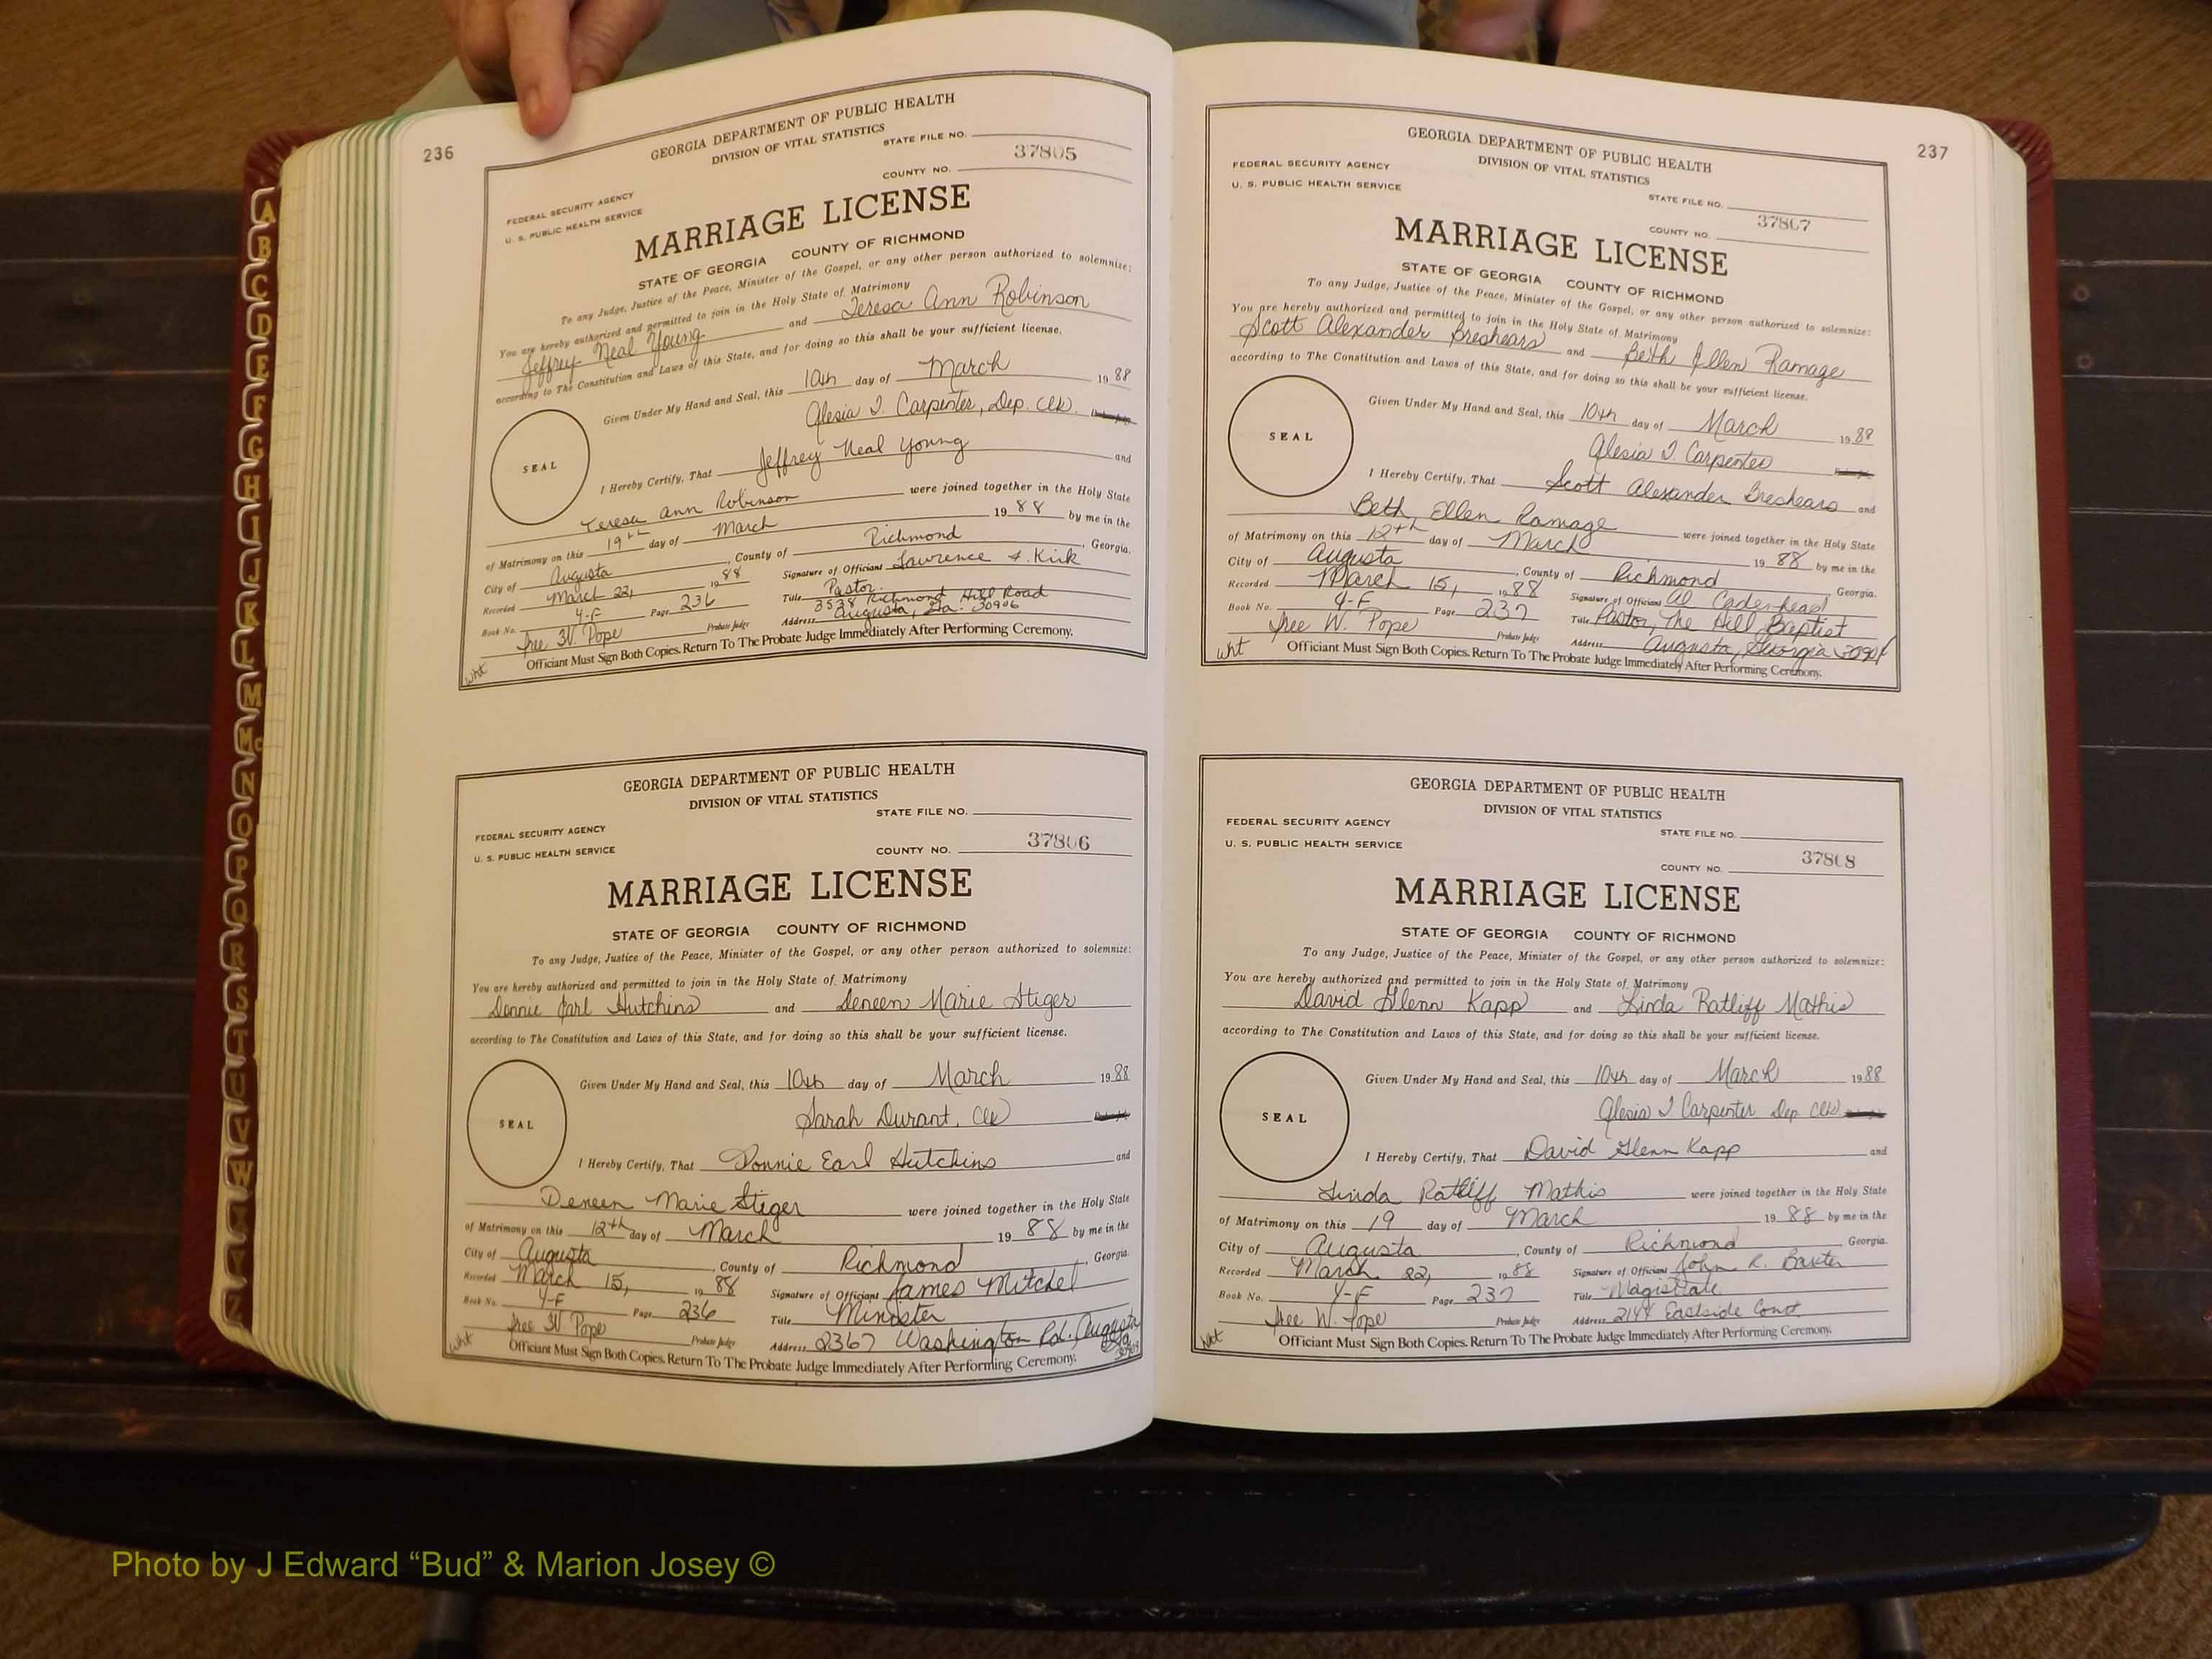 236
GEORGIA DEPARTMENT OF PUBLIC HEALTH
DIVISION OF VITAL STATISTICS
STATE FILE NO.
37805
FEDERAL SECURITY AGENCY
U. S. PUBLIC HEALTH SERVICE
COUNTY NO.
MARRIAGE LICENSE
STATE OF GEORGIA COUNTY OF RICHMOND
To any Judge, Justice of the Peace, Minister of the Gospel, or any other person authorized to solemnize:
You are hereby authorized and permitted to join in the Holy State of Matrimony
Jeffrey Neal Young and Teresa Ann Robinson
according to The Constitution and Laws of this State, and for doing so this shall be your sufficient license.
Given Under My Hand and Seal, this 10th day of March 19 88
Alesia I. Carpenter, Dep. Clk.
SEAL
I Hereby Certify, That Jeffrey Neal Young and
Teresa Ann Robinson were joined together in the Holy State
of Matrimony on this 19th day of March 19 88 by me in the
City of Augusta, County of Richmond, Georgia.
Recorded March 22, 19 88 Signature of Officiant Lawrence F. Kirk
Book No. 4-F Page 236 Title Pastor
3538 Richmond Hill Road
Tree W. Pope Probate Judge Address Augusta, Ga. 30906
Officiant Must Sign Both Copies. Return To The Probate Judge Immediately After Performing Ceremony.
wht
GEORGIA DEPARTMENT OF PUBLIC HEALTH
DIVISION OF VITAL STATISTICS
STATE FILE NO.
FEDERAL SECURITY AGENCY
U. S. PUBLIC HEALTH SERVICE
COUNTY NO. 37806
MARRIAGE LICENSE
STATE OF GEORGIA COUNTY OF RICHMOND
To any Judge, Justice of the Peace, Minister of the Gospel, or any other person authorized to solemnize:
You are hereby authorized and permitted to join in the Holy State of Matrimony
Donnie Earl Hutchins and Deneen Marie Stiger
according to The Constitution and Laws of this State, and for doing so this shall be your sufficient license.
Given Under My Hand and Seal, this 10th day of March 19 88
Sarah Durant, Clk
SEAL
I Hereby Certify, That Donnie Earl Hutchins and
Deneen Marie Stiger were joined together in the Holy State
of Matrimony on this 12th day of March 19 88 by me in the
City of Augusta, County of Richmond, Georgia.
Recorded March 15, 19 88 Signature of Officiant James Mitchel
Book No. 4-F Page 236 Title Minister
Tree W. Pope Probate Judge Address 2367 Washington Rd. Augusta
Officiant Must Sign Both Copies. Return To The Probate Judge Immediately After Performing Ceremony.
wht
237
GEORGIA DEPARTMENT OF PUBLIC HEALTH
DIVISION OF VITAL STATISTICS
FEDERAL SECURITY AGENCY
U. S. PUBLIC HEALTH SERVICE
STATE FILE NO.
37807
COUNTY NO.
MARRIAGE LICENSE
STATE OF GEORGIA COUNTY OF RICHMOND
To any Judge, Justice of the Peace, Minister of the Gospel, or any other person authorized to solemnize:
You are hereby authorized and permitted to join in the Holy State of Matrimony
Scott Alexander Breshears and Beth Ellen Ramage
according to The Constitution and Laws of this State, and for doing so this shall be your sufficient license.
Given Under My Hand and Seal, this 10th day of March 19 88
Alesia I. Carpenter
SEAL
I Hereby Certify, That Scott Alexander Breshears and
Beth Ellen Ramage were joined together in the Holy State
of Matrimony on this 12th day of March 19 88 by me in the
City of Augusta, County of Richmond, Georgia.
Recorded March 15, 19 88 Signature of Officiant Al Cadenhead
Book No. 4-F Page 237 Title Pastor, The Hill Baptist
Tree W. Pope Probate Judge Address Augusta, Georgia 30904
Officiant Must Sign Both Copies. Return To The Probate Judge Immediately After Performing Ceremony.
wht
GEORGIA DEPARTMENT OF PUBLIC HEALTH
DIVISION OF VITAL STATISTICS
FEDERAL SECURITY AGENCY
STATE FILE NO.
U. S. PUBLIC HEALTH SERVICE
COUNTY NO. 37808
MARRIAGE LICENSE
STATE OF GEORGIA COUNTY OF RICHMOND
To any Judge, Justice of the Peace, Minister of the Gospel, or any other person authorized to solemnize:
You are hereby authorized and permitted to join in the Holy State of Matrimony
David Glenn Kapp and Linda Ratliff Mathis
according to The Constitution and Laws of this State, and for doing so this shall be your sufficient license.
Given Under My Hand and Seal, this 10th day of March 19 88
Alesia I Carpenter Dep. Clk
SEAL
I Hereby Certify, That David Glenn Kapp and
Linda Ratliff Mathis were joined together in the Holy State
of Matrimony on this 19 day of March 19 88 by me in the
City of Augusta, County of Richmond Georgia.
Recorded March 22, 19 88 Signature of Officiant John R. Baxter
Book No. 4-F Page 237 Title Magistrate
Tree W. Pope Probate Judge Address 2144 Eastside Court
Officiant Must Sign Both Copies. Return To The Probate Judge Immediately After Performing Ceremony.
wht
A
B
C
D
E
F
G
H
I
J
K
L
M
Mc
N
O
P
Q
R
S
T
U
V
W
Photo by J Edward “Bud” & Marion Josey ©